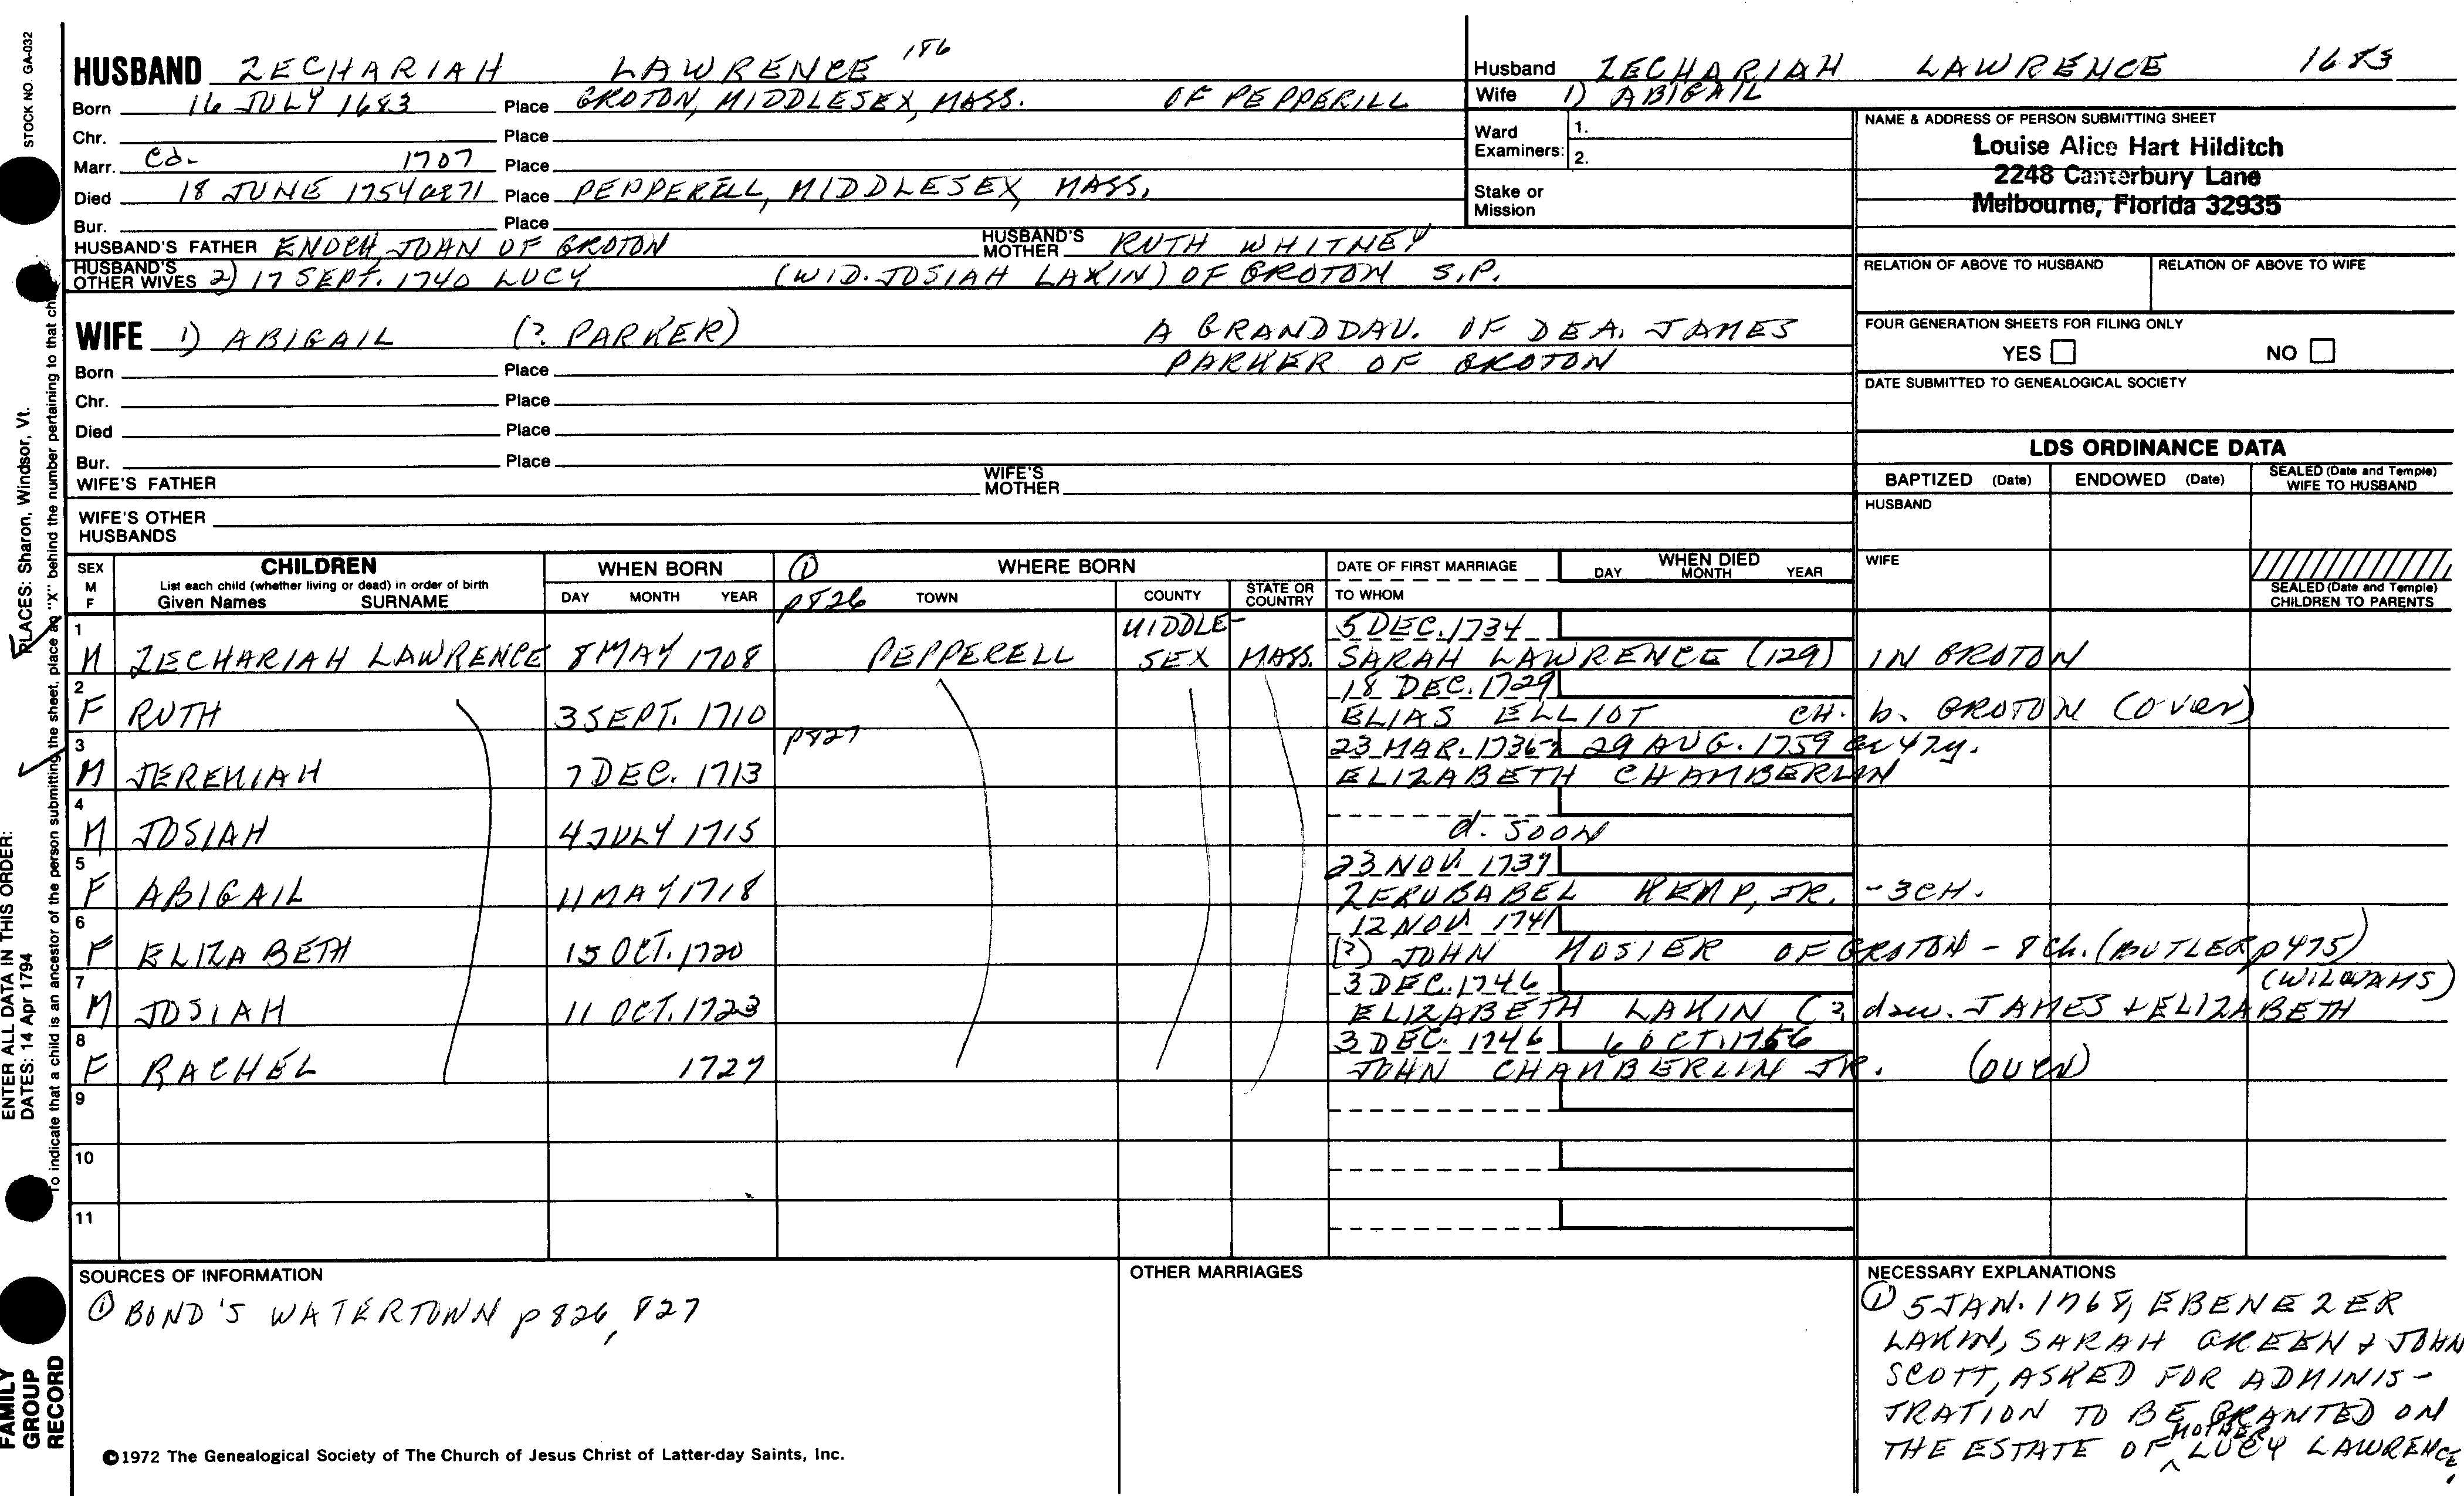 STOCK NO. GA-032
HUSBAND ZECHARIAH LAWRENCE 186
Born 16 JULY 1683 Place GROTON, MIDDLESEX, MASS. OF PEPPERILL
Chr. Place
Marr. Ca. 1707 Place
Died 18 JUNE 1754 ae 71 Place PEPPERELL, MIDDLESEX, MASS.
Bur. Place
HUSBAND'S FATHER ENOCH, JOHN OF GROTON HUSBAND'S MOTHER RUTH WHITNEY
HUSBAND'S OTHER WIVES 2) 17 SEPT. 1740 LUCY (WID. JOSIAH LAKIN) OF GROTON S.P.
WIFE 1) ABIGAIL (? PARKER) A GRANDDAU. OF DEA. JAMES
PARKER OF GROTON
Born Place
Chr. Place
Died Place
Bur. Place
WIFE'S FATHER WIFE'S MOTHER
WIFE'S OTHER HUSBANDS
Husband ZECHARIAH LAWRENCE 1683
Wife 1) ABIGAIL
Ward Examiners: 1.
2.
Stake or Mission
NAME & ADDRESS OF PERSON SUBMITTING SHEET
Louise Alice Hart Hilditch
2248 Canterbury Lane
Melbourne, Florida 32935
RELATION OF ABOVE TO HUSBAND RELATION OF ABOVE TO WIFE
FOUR GENERATION SHEETS FOR FILING ONLY
YES NO
DATE SUBMITTED TO GENEALOGICAL SOCIETY
LDS ORDINANCE DATA
BAPTIZED (Date) ENDOWED (Date) SEALED (Date and Temple) WIFE TO HUSBAND
HUSBAND
WIFE
SEALED (Date and Temple) CHILDREN TO PARENTS
SEX M F
CHILDREN
List each child (whether living or dead) in order of birth
Given Names SURNAME
WHEN BORN
DAY MONTH YEAR
① WHERE BORN
p826 TOWN COUNTY STATE OR COUNTRY
DATE OF FIRST MARRIAGE
TO WHOM
WHEN DIED
DAY MONTH YEAR
1 MIDDLE- 5 DEC. 1734
M ZECHARIAH LAWRENCE 8 MAY 1708 PEPPERELL SEX MASS. SARAH LAWRENCE (129) IN GROTON
2 18 DEC. 1729
F RUTH 3 SEPT. 1710 ELIAS ELLIOT CH. b. GROTON (over)
3 p827 23 MAR. 1736-7 29 AUG. 1759 ae 47y.
M JEREMIAH 7 DEC. 1713 ELIZABETH CHAMBERLIN
4
M JOSIAH 4 JULY 1715 d. SOON
5 23 NOV. 1739
F ABIGAIL 11 MAY 1718 ZERUBABEL KEMP, JR. - 3 CH.
6 12 NOV. 1741
F ELIZABETH 15 OCT. 1720 (?) JOHN MOSIER OF GROTON - 8 Ch. (BUTLER p475)
7 3 DEC. 1746 (WILLIAMS)
M JOSIAH 11 OCT. 1723 ELIZABETH LAKIN (? dau. JAMES + ELIZABETH
8 3 DEC. 1746 6 OCT. 1756
F RACHEL 1727 JOHN CHAMBERLIN JR. (over)
9
10
11
SOURCES OF INFORMATION
① BOND'S WATERTOWN p 826, 827
OTHER MARRIAGES
NECESSARY EXPLANATIONS
① 5 JAN. 1768, EBENEZER
LAKIN, SARAH GREEN & JOHN
SCOTT, ASKED FOR ADMINIS-
TRATION TO BE GRANTED ON
THE ESTATE OF MOTHER LUCY LAWRENCE,
©1972 The Genealogical Society of The Church of Jesus Christ of Latter-day Saints, Inc.
PLACES: Sharon, Windsor, Vt.
ENTER ALL DATA IN THIS ORDER:
DATES: 14 Apr 1794
To indicate that a child is an ancestor of the person submitting the sheet, place an "X" behind the number pertaining to that
FAMILY GROUP RECORD